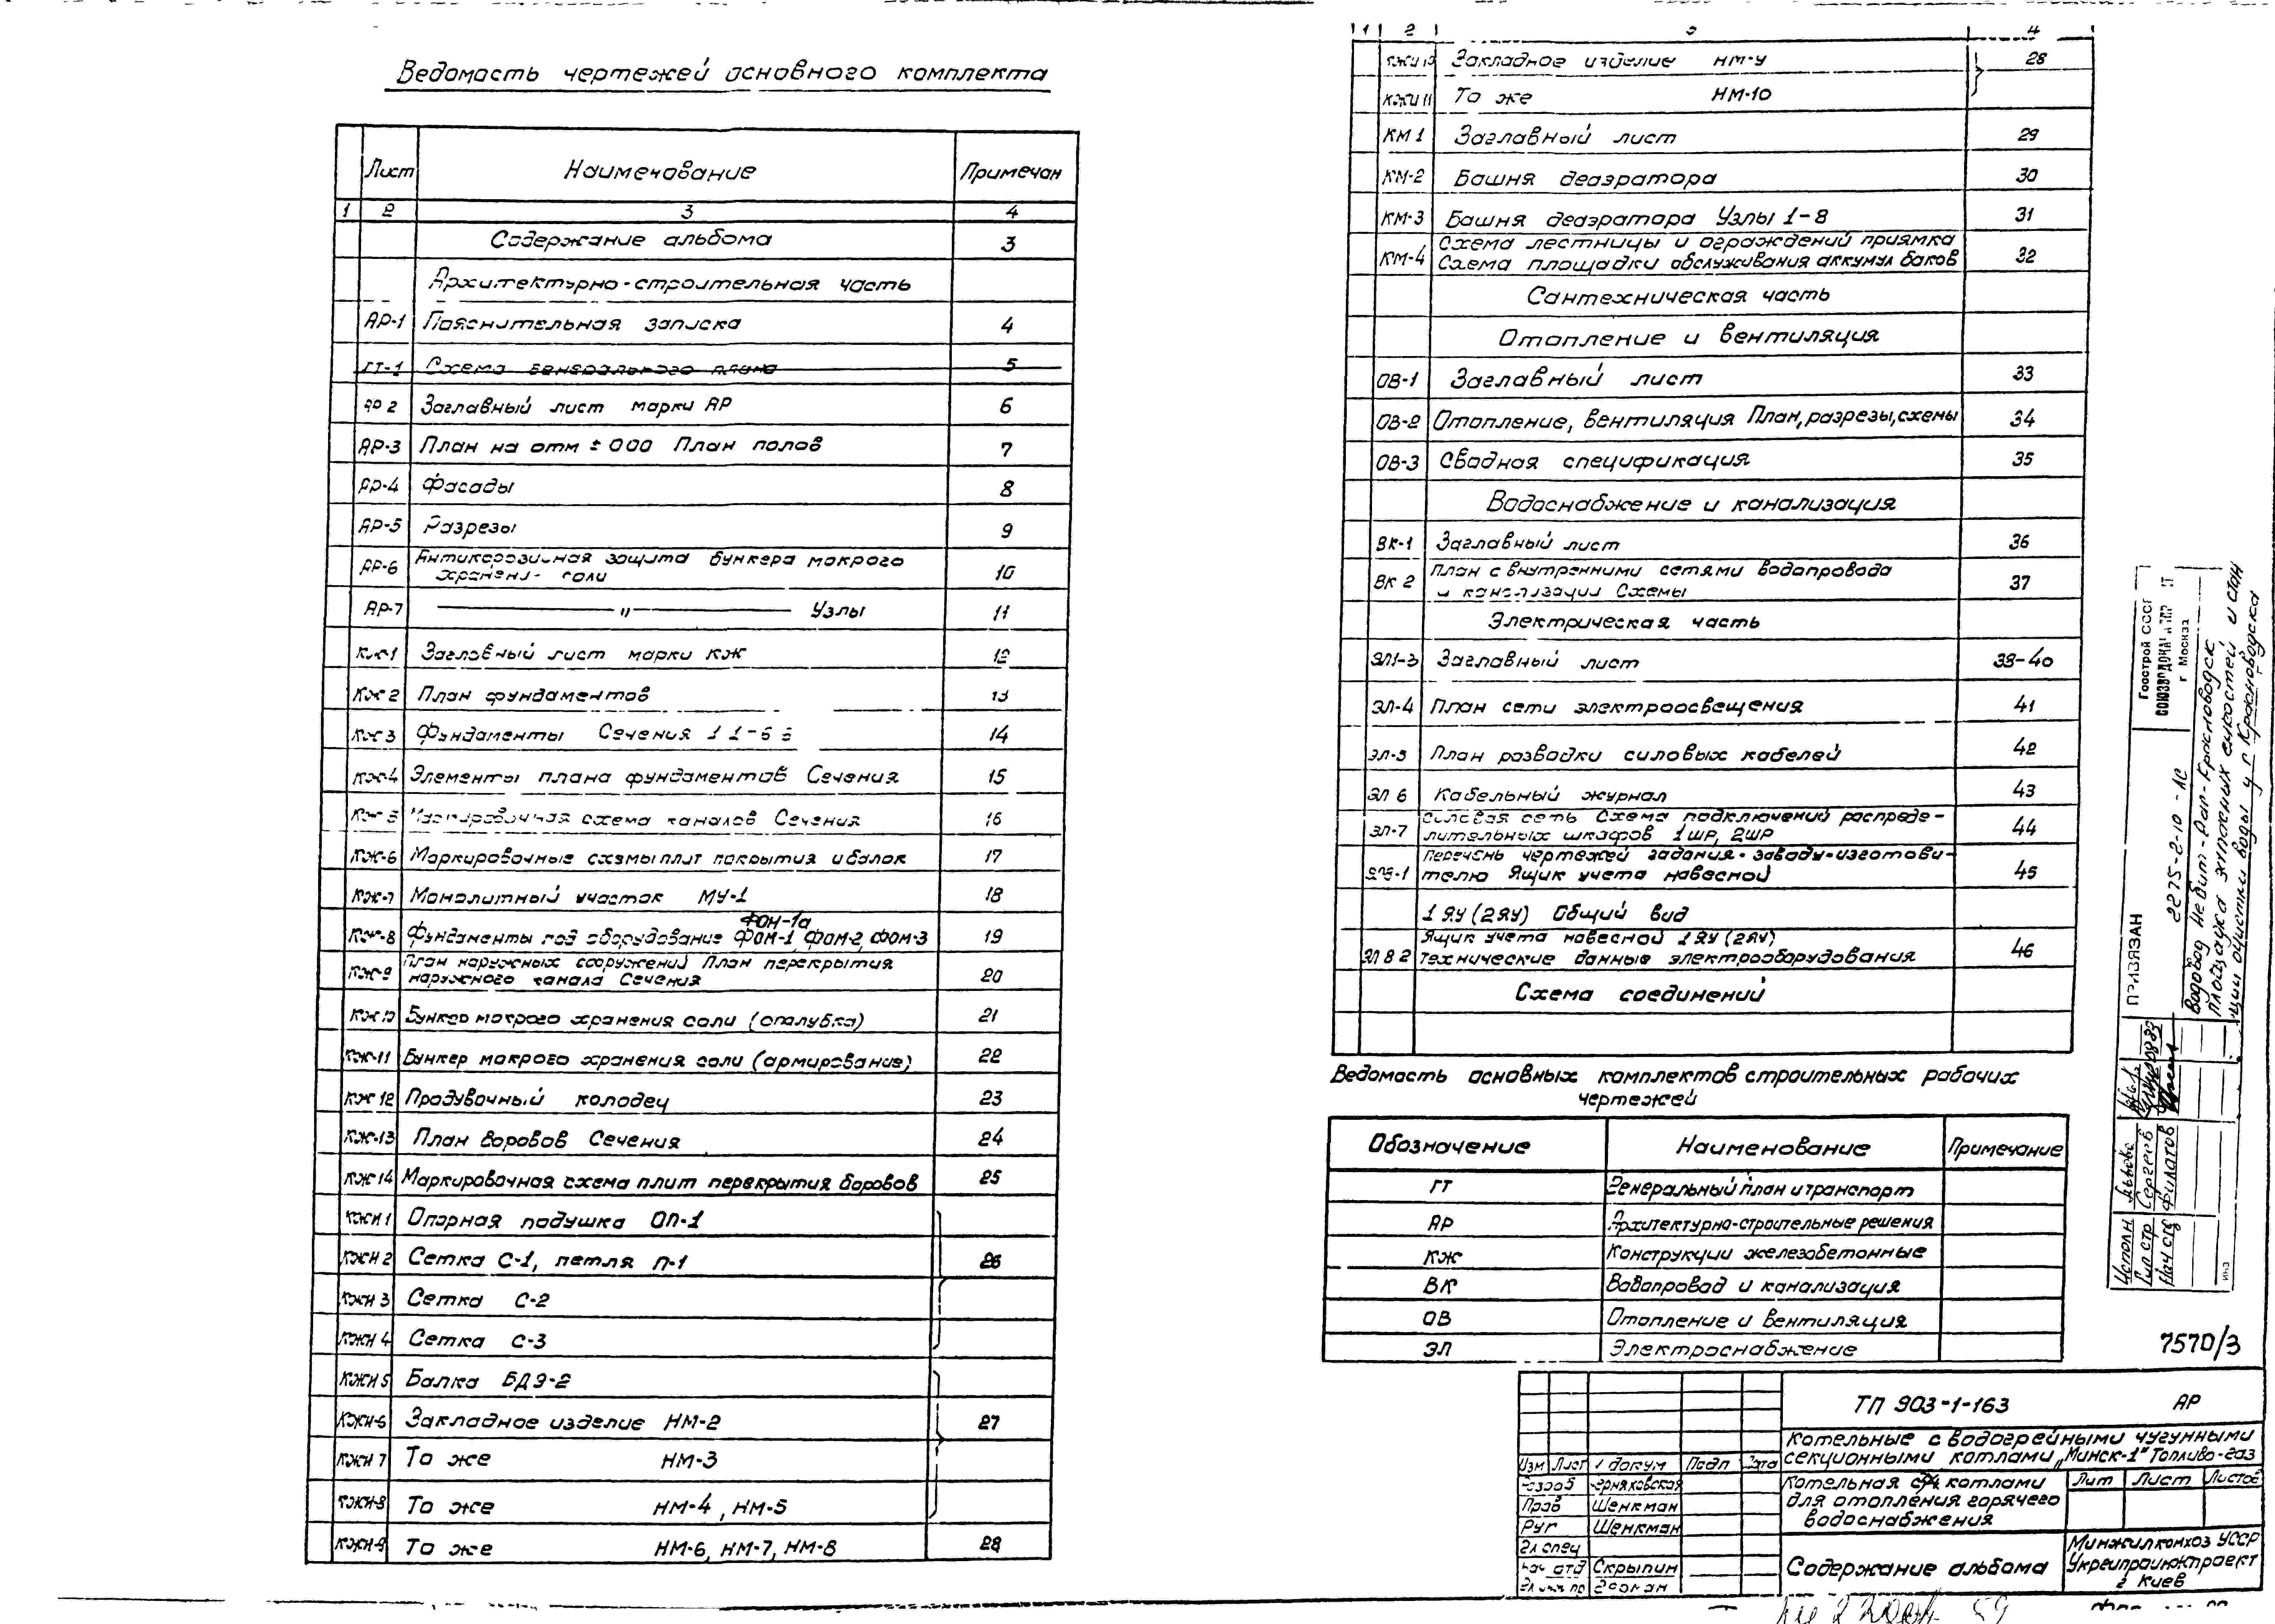 Ведомость чертежей основного комплекта
Лист Наименование Примечан
1 2 3 4
Содержание альбома 3
Архитектурно-строительная часть
АР-1 Пояснительная записка 4
ГТ-1 Схема генерального плана 5
АР 2 Заглавный лист марки АР 6
АР-3 План на отм ± 000 План полов 7
АР-4 Фасады 8
АР-5 Разрезы 9
АР-6 Антикорозийная защита бункера мокрого
хранени- соли 10
АР-7 " Узлы 11
КЖ-1 Заглавный лист марки КЖ 12
КЖ 2 План фундаментов 13
КЖ 3 Фундаменты Сечения 1 1-6 6 14
КЖ-4 Элементы плана фундаментов Сечения 15
КЖ 5 Маркировочная схема каналов Сечения 16
КЖ-6 Маркировочные схемы плит покрытия и балок 17
КЖ-7 Монолитный участок МУ-1 18
ФОН-1а
КЖ-8 Фундаменты под оборудование ФОМ-1, ФОМ-2, ФОМ-3 19
КЖ-9 План наружных сооружений План перекрытия
наружного канала Сечения 20
КЖ 10 Бункер мокрого хранения соли (опалубка) 21
КЖ-11 Бункер мокрого хранения соли (армирование) 22
КЖ 12 Продувочный колодец 23
КЖ-13 План боровов Сечения 24
КЖ 14 Маркировочная схема плит перекрытия боровов 25
КЖИ 1 Опорная подушка ОП-1
КЖИ 2 Сетка С-1, петля П-1 26
КЖИ 3 Сетка С-2
КЖИ 4 Сетка С-3
КЖИ 5 Балка БДЭ-2
КЖИ-6 Закладное изделие НМ-2 27
КЖИ 7 То же НМ-3
КЖИ-8 То же НМ-4, НМ-5
КЖИ-9 То же НМ-6, НМ-7, НМ-8 28
1 2 3 4
КЖИ 10 Закладное изделие НМ-9 28
КЖИ 11 То же НМ-10
КМ 1 Заглавный лист 29
КМ-2 Башня деаэратора 30
КМ-3 Башня деаэратора Узлы 1-8 31
КМ-4 Схема лестницы и ограждений приямка
Схема площадки обслуживания аккумул баков 32
Сантехническая часть
Отопление и вентиляция
ОВ-1 Заглавный лист 33
ОВ-2 Отопление, вентиляция План, разрезы, схемы 34
ОВ-3 Сводная спецификация 35
Водоснабжение и канализация
ВК-1 Заглавный лист 36
ВК 2 План с внутренними сетями водопровода
и канализации Схемы 37
Электрическая часть
ЭЛ1-3 Заглавный лист 38-40
ЭЛ-4 План сети электроосвещения 41
ЭЛ-5 План разводки силовых кабелей 42
ЭЛ 6 Кабельный журнал 43
ЭЛ-7 Силовая сеть Схема подключений распреде-
лительных шкафов 1ШР, 2ШР 44
Перечень чертежей задания-заводу-изготови-
телю Ящик учета навесной 45
1ЯУ (2ЯУ) Общий вид
ЭЛ 8 2 Ящик учета навесной 1ЯУ (2ЯУ)
технические данные электрооборудования 46
Схема соединений
Ведомость основных комплектов строительных рабочих
чертежей
Обозначение Наименование Примечание
ГТ Генеральный план и транспорт
АР Архитектурно-строительные решения
КЖ Конструкции железобетонные
ВК Водопровод и канализация
ОВ Отопление и вентиляция
ЭЛ Электроснабжение
Госстрой СССР
г Москва
ПРИВЯЗАН 2275-2-10-АС
Водовод Небит-Даг-Красноводск
Площадка
воды у г Красноводска
Исполн Львова
Гл стр Сергеев
Нач отд Филатов
ИНВ
7570/3
ТП 903-1-163 АР
Котельные с водогрейными чугунными
секционными котлами „Минск-1" Топливо-газ
Изм Лист № докум Подп Дата
Разраб Черняховская
Пров Шенкман
Рук Шенкман
Гл спец
Нач отд Скрыпин
Котельная с 4 котлами
для отопления горячего
водоснабжения
Лит Лист Листов
Содержание альбома
Минжилкомхоз УССР
Укргипроинжпроект
г Киев